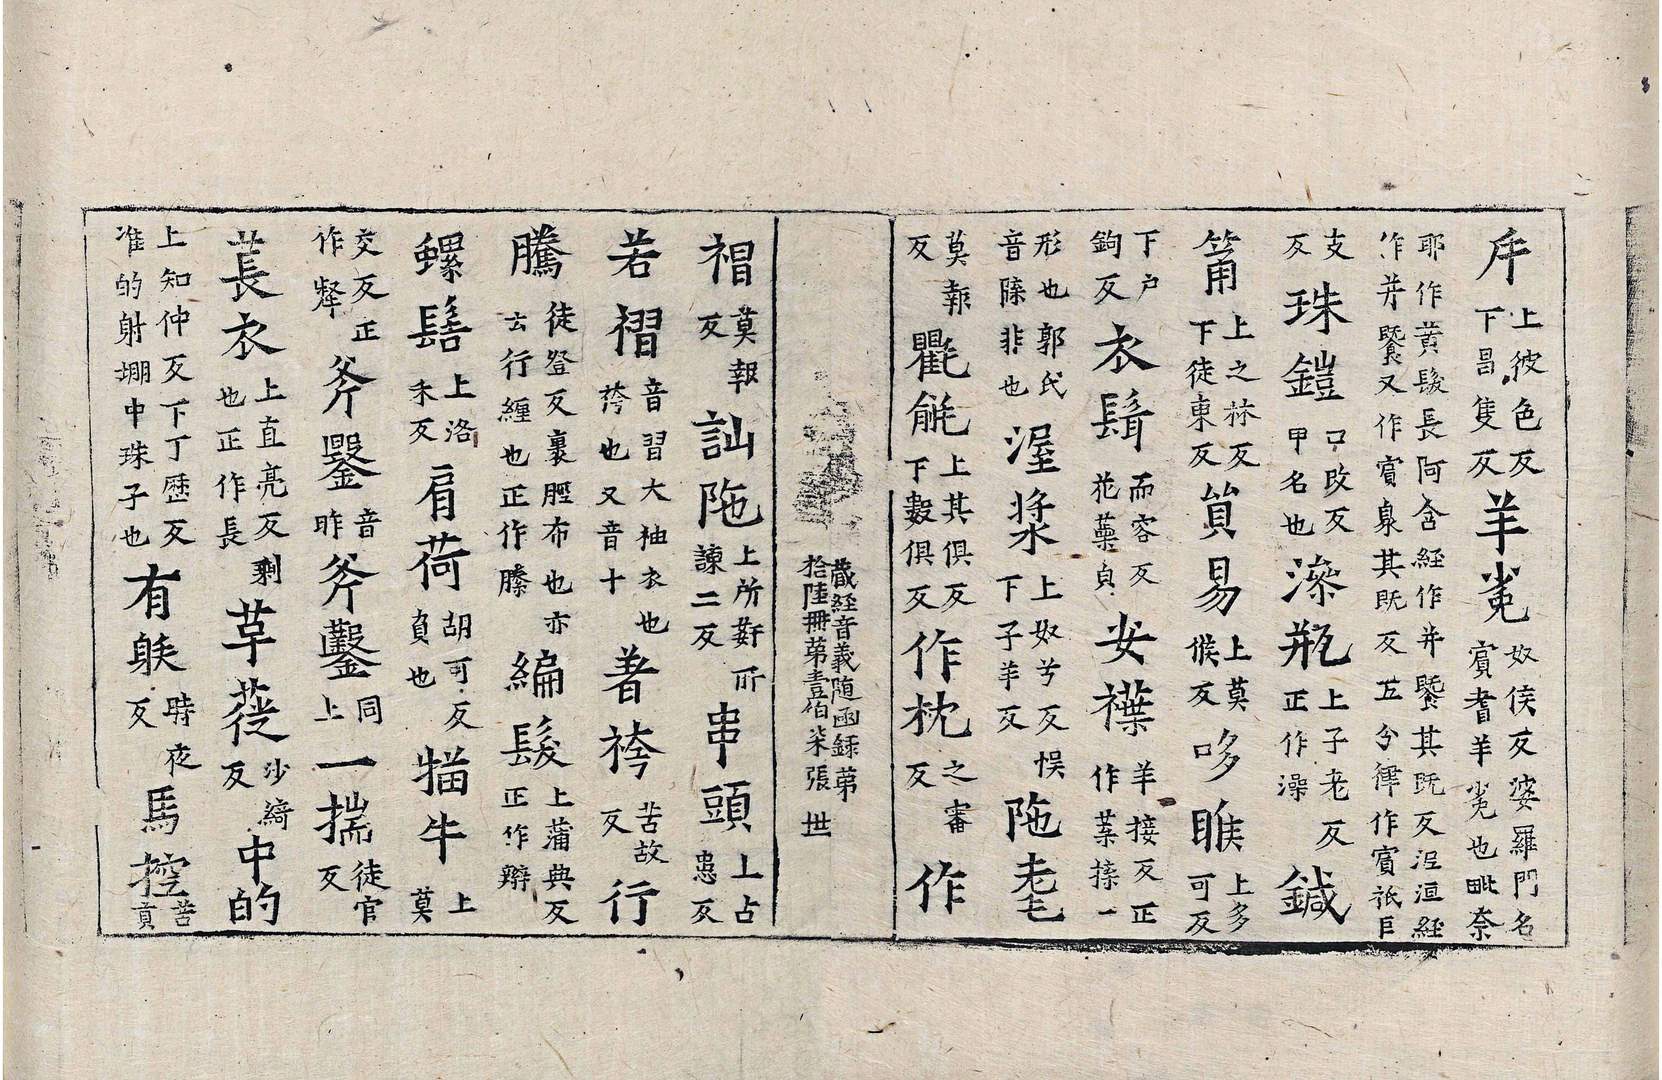 斥上彼色反下昌隻反羊㲋奴侯反婆羅門名賔耆羊㲋也毗奈
耶作黄髮長阿含經作并𩜍其既反泹洹經作并𩜍又作賔㒵其既反五分律作賔祇巨
支反珠鎧口改反甲名也𣽂瓶上子老反正作澡鍼
筩上之林反下徒東反貿易上莫𠋫反哆睺上多可反
下户鉤反衣䩸而容反花蘂皃安褋羊接反正作葉揉一
形也郭氏音牒非也渥漿上奴兮反悞下子羊反陁耄
莫報反氍㲣上其俱反下數俱反作枕之審反作
藏經音義随函録苐拾陸冊苐壹伯柒張 世
㡌莫報反訕陁上所姧反下所諫二反串頭上古患反
若褶音習大袖衣也袴也又音十著袴苦故反行
騰徒登反裹脛布也亦云行纏也正作縢編髮上蒲典反正作辮
螺髻上洛禾反肩荷胡可反負也犌牛上莫
交反正作犛斧鑿音昨斧鑿同上一揣徒官反
萇衣上直亮反剰也正作長草蓰沙綺反中的
上知仲反下丁歴反准的射堋中珠子也有䠶時夜反馬控苦貢